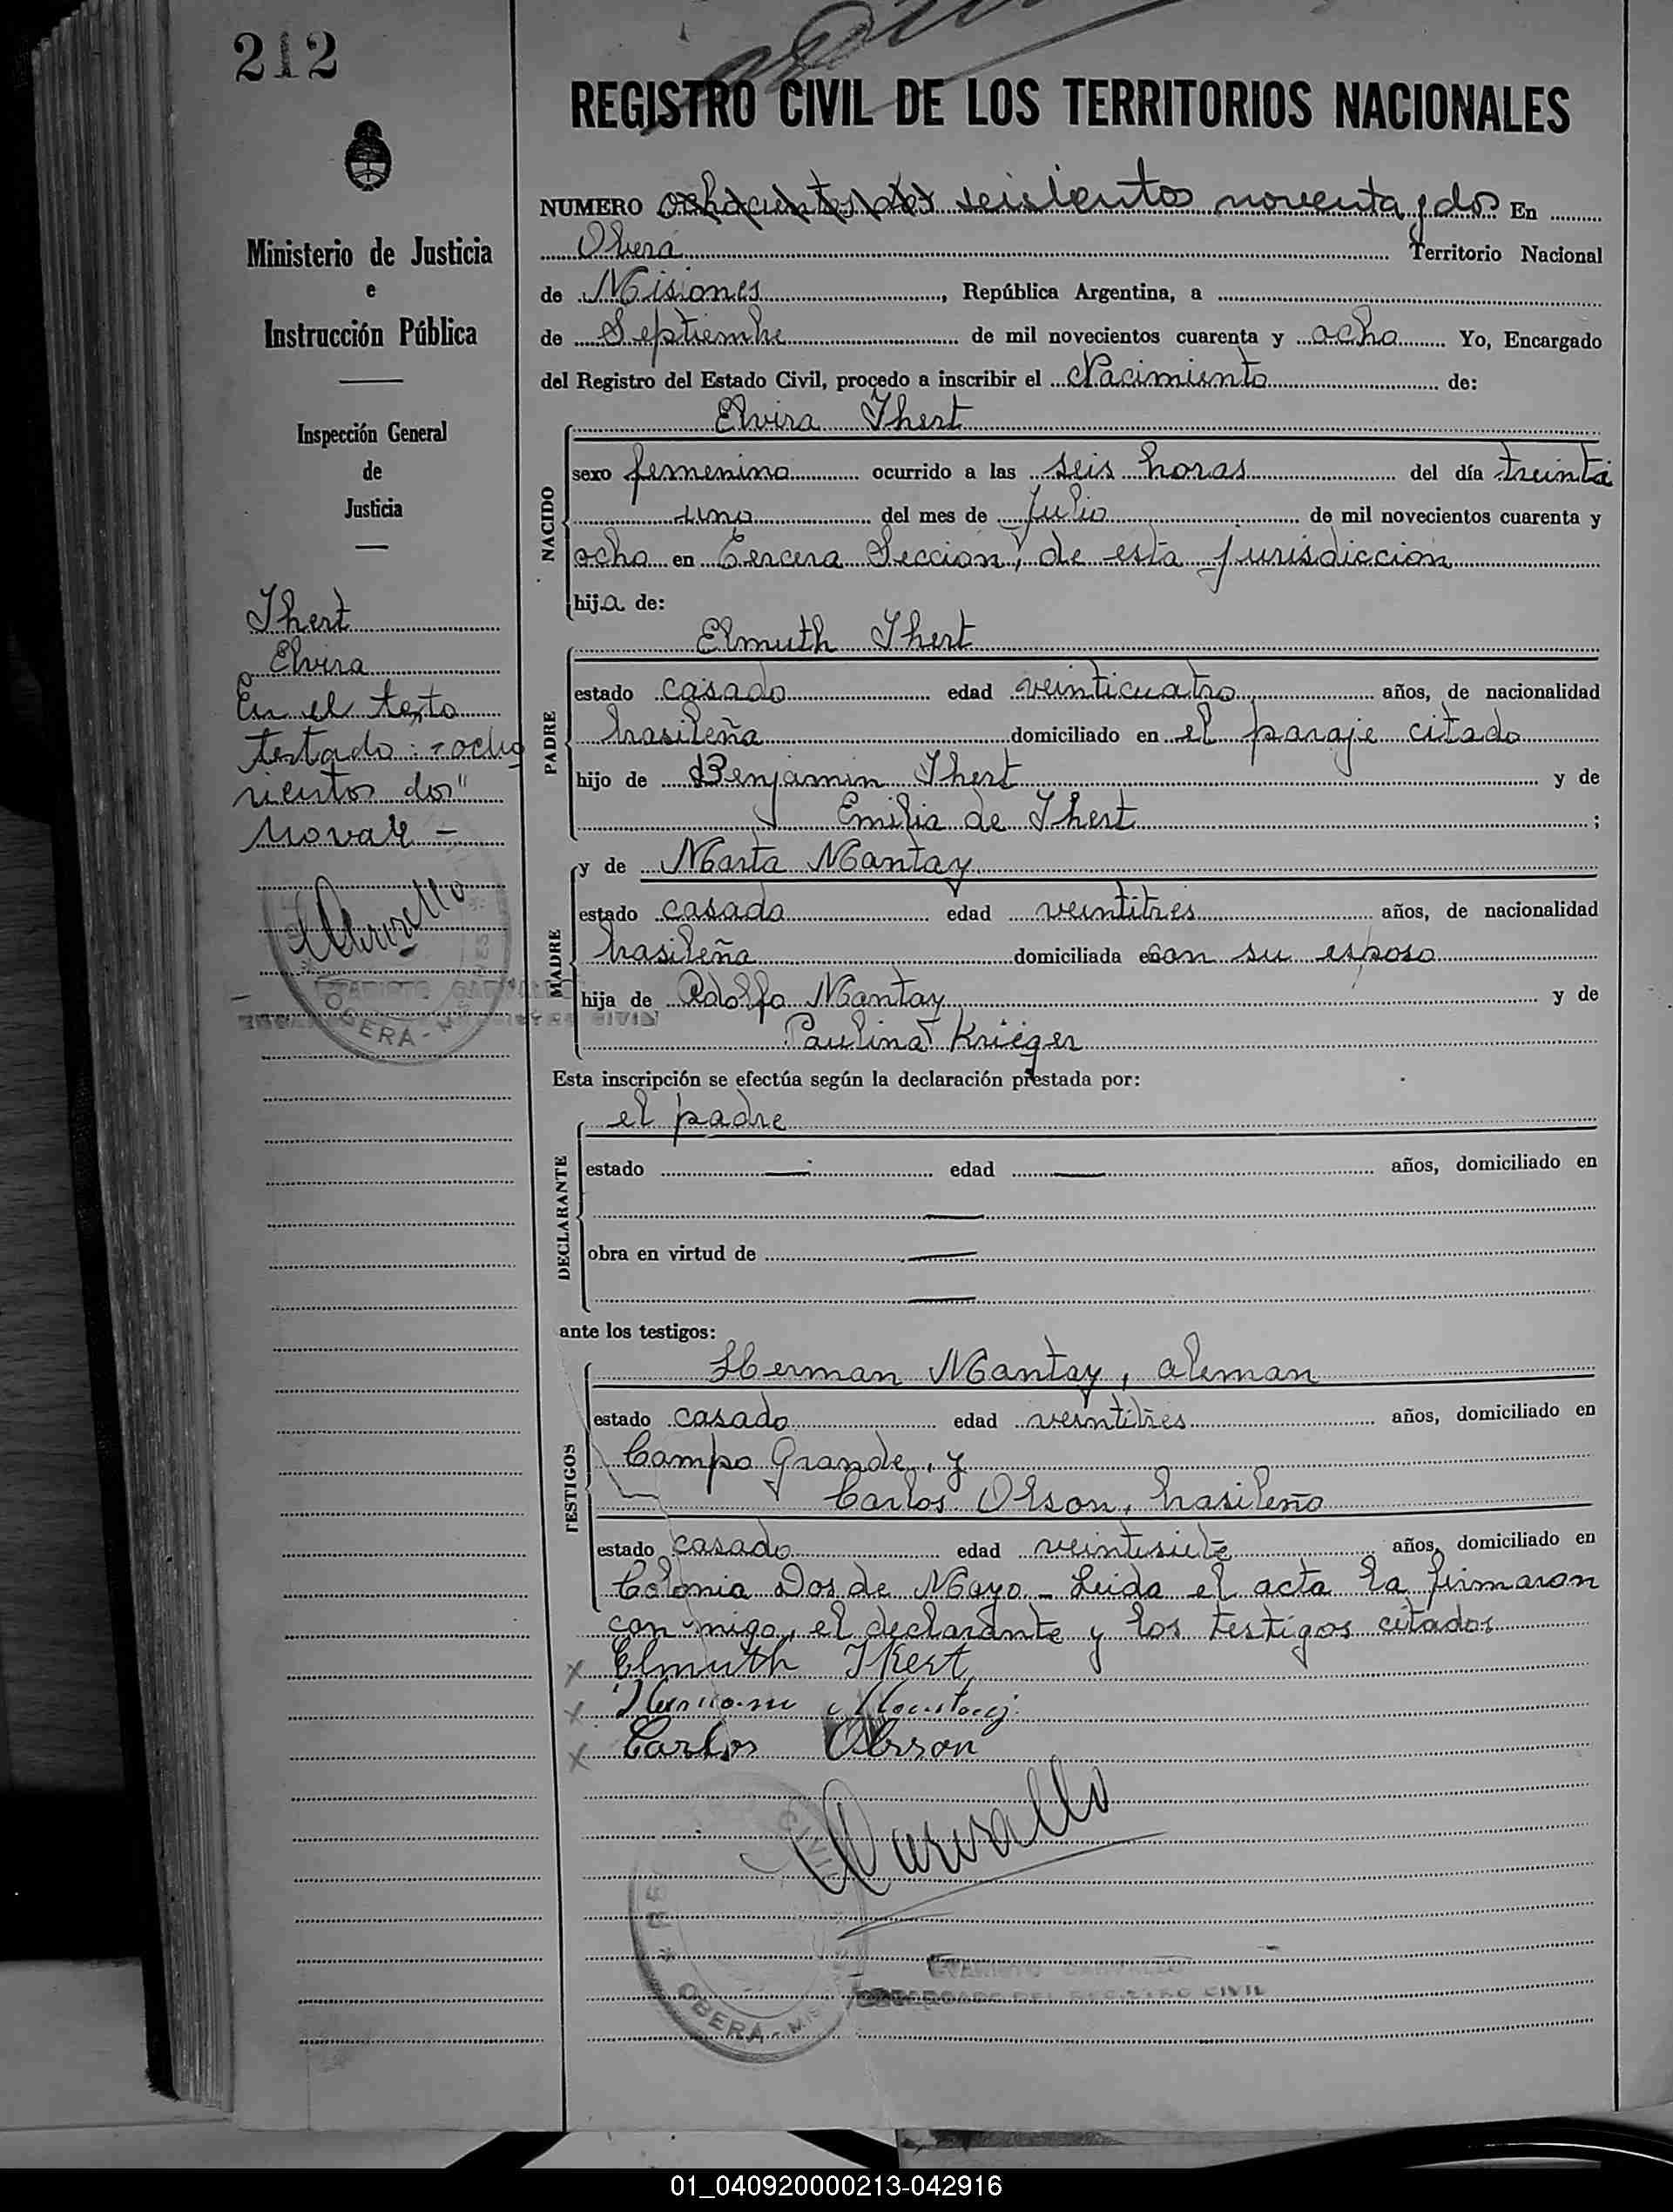 212
REGISTRO CIVIL DE LOS TERRITORIOS NACIONALES
NUMERO ochocientos dos seiscientos noventa y dos En
Oberá Territorio Nacional
de Misiones, República Argentina, a
de Septiembre de mil novecientos cuarenta y ocho Yo, Encargado
del Registro del Estado Civil, procedo a inscribir el Nacimiento de:
Ministerio de Justicia
e
Instrucción Pública
Inspección General
de
Justicia
Ihert
Elvira
En el texto
testado: "ocho
cientos dos"
No vale -
Carvallo
OBERÁ - MIS
NACIDO
Elvira Ihert
sexo femenino ocurrido a las seis horas del día treinta
uno del mes de Julio de mil novecientos cuarenta y
ocho en Tercera Sección, de esta jurisdicción
hija de:
PADRE
Elmuth Ihert
estado casado edad veinticuatro años, de nacionalidad
brasileña domiciliado en el paraje citado
hijo de Benjamin Ihert y de
Emilia de Ihert ;
MADRE
y de Marta Mantay
estado casada edad veintitres años, de nacionalidad
brasileña domiciliada con su esposo
hija de Adolfo Mantay y de
Paulina Krieger
Esta inscripción se efectúa según la declaración prestada por:
DECLARANTE
el padre
estado — edad — años, domiciliado en
—
obra en virtud de —
—
ante los testigos:
TESTIGOS
Herman Mantay, aleman
estado casado edad veintitres años, domiciliado en
Campo Grande, y
Carlos Olson, brasileño
estado casado edad veintisiete años, domiciliado en
Colonia Dos de Mayo - Leida el acta la firmaron
con migo, el declarante y los testigos citados
x Elmuth Ikert
x Hermann Mantay
x Carlos Olsson
Carvallo
CIVIL
OBERÁ - MIS
ENCARGADO DEL REGISTRO CIVIL
01_040920000213-042916